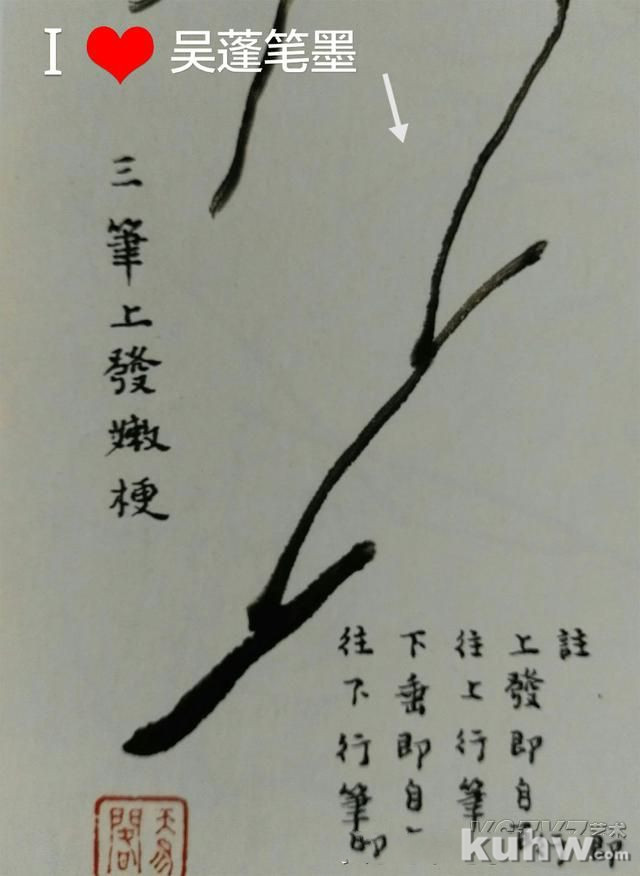 I ❤ 吴蓬笔墨
三筆上發嫩梗
註
上發即自
往上行筆
下垂即自
往下行筆
艺术
kuhw.com